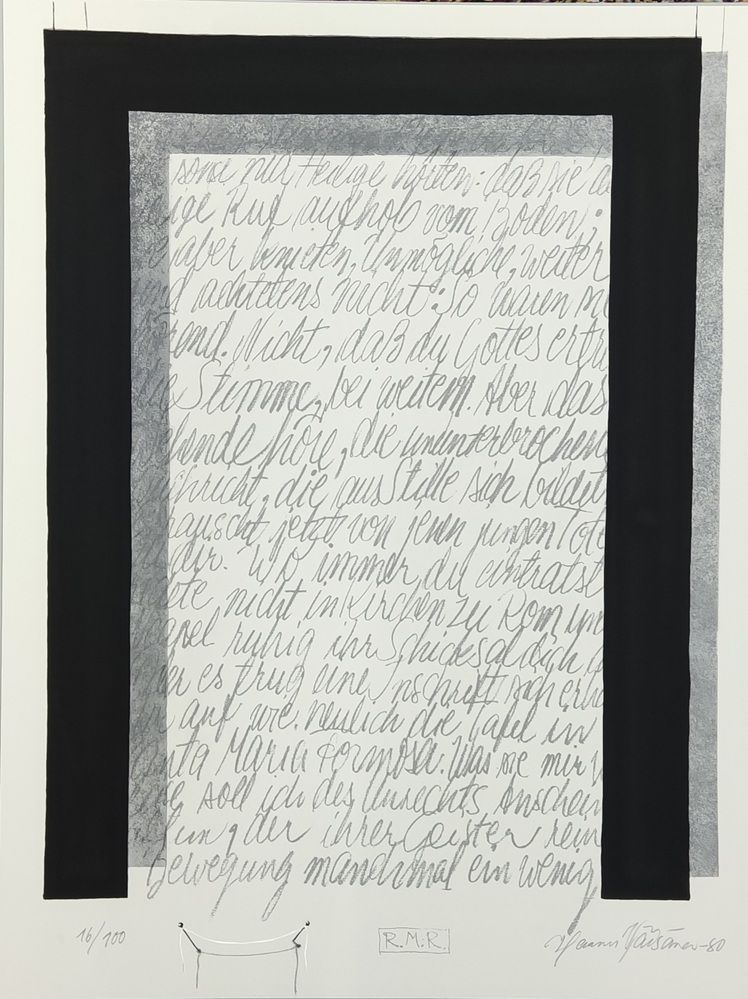 sonst nur Heilige hörten: daß sie
ige Ruf aufhob vom Boden;
aber knieten, Unmögliche, weiter
nd achtetens nicht: So waren sie
örend. Nicht, daß du Gottes ertrü
ie Stimme, bei weitem. Aber das
ehende höre, die ununterbrochene
chricht, die aus Stille sich bildet
rauscht jetzt von jenen jungen Tote
dir. Wo immer du eintratst
ete nicht in Kirchen zu Rom un
apel ruhig ihr Schicksal dich
er es trug eine Inschrift sich erha
auf wie neulich die Tafel in
anta Maria Formosa. Was sie mir
soll ich des Unrechts Anschein
un, der ihrer Geister rein
Bewegung manchmal ein wenig
16/100
R.M.R.
Hannu Väisänen -80